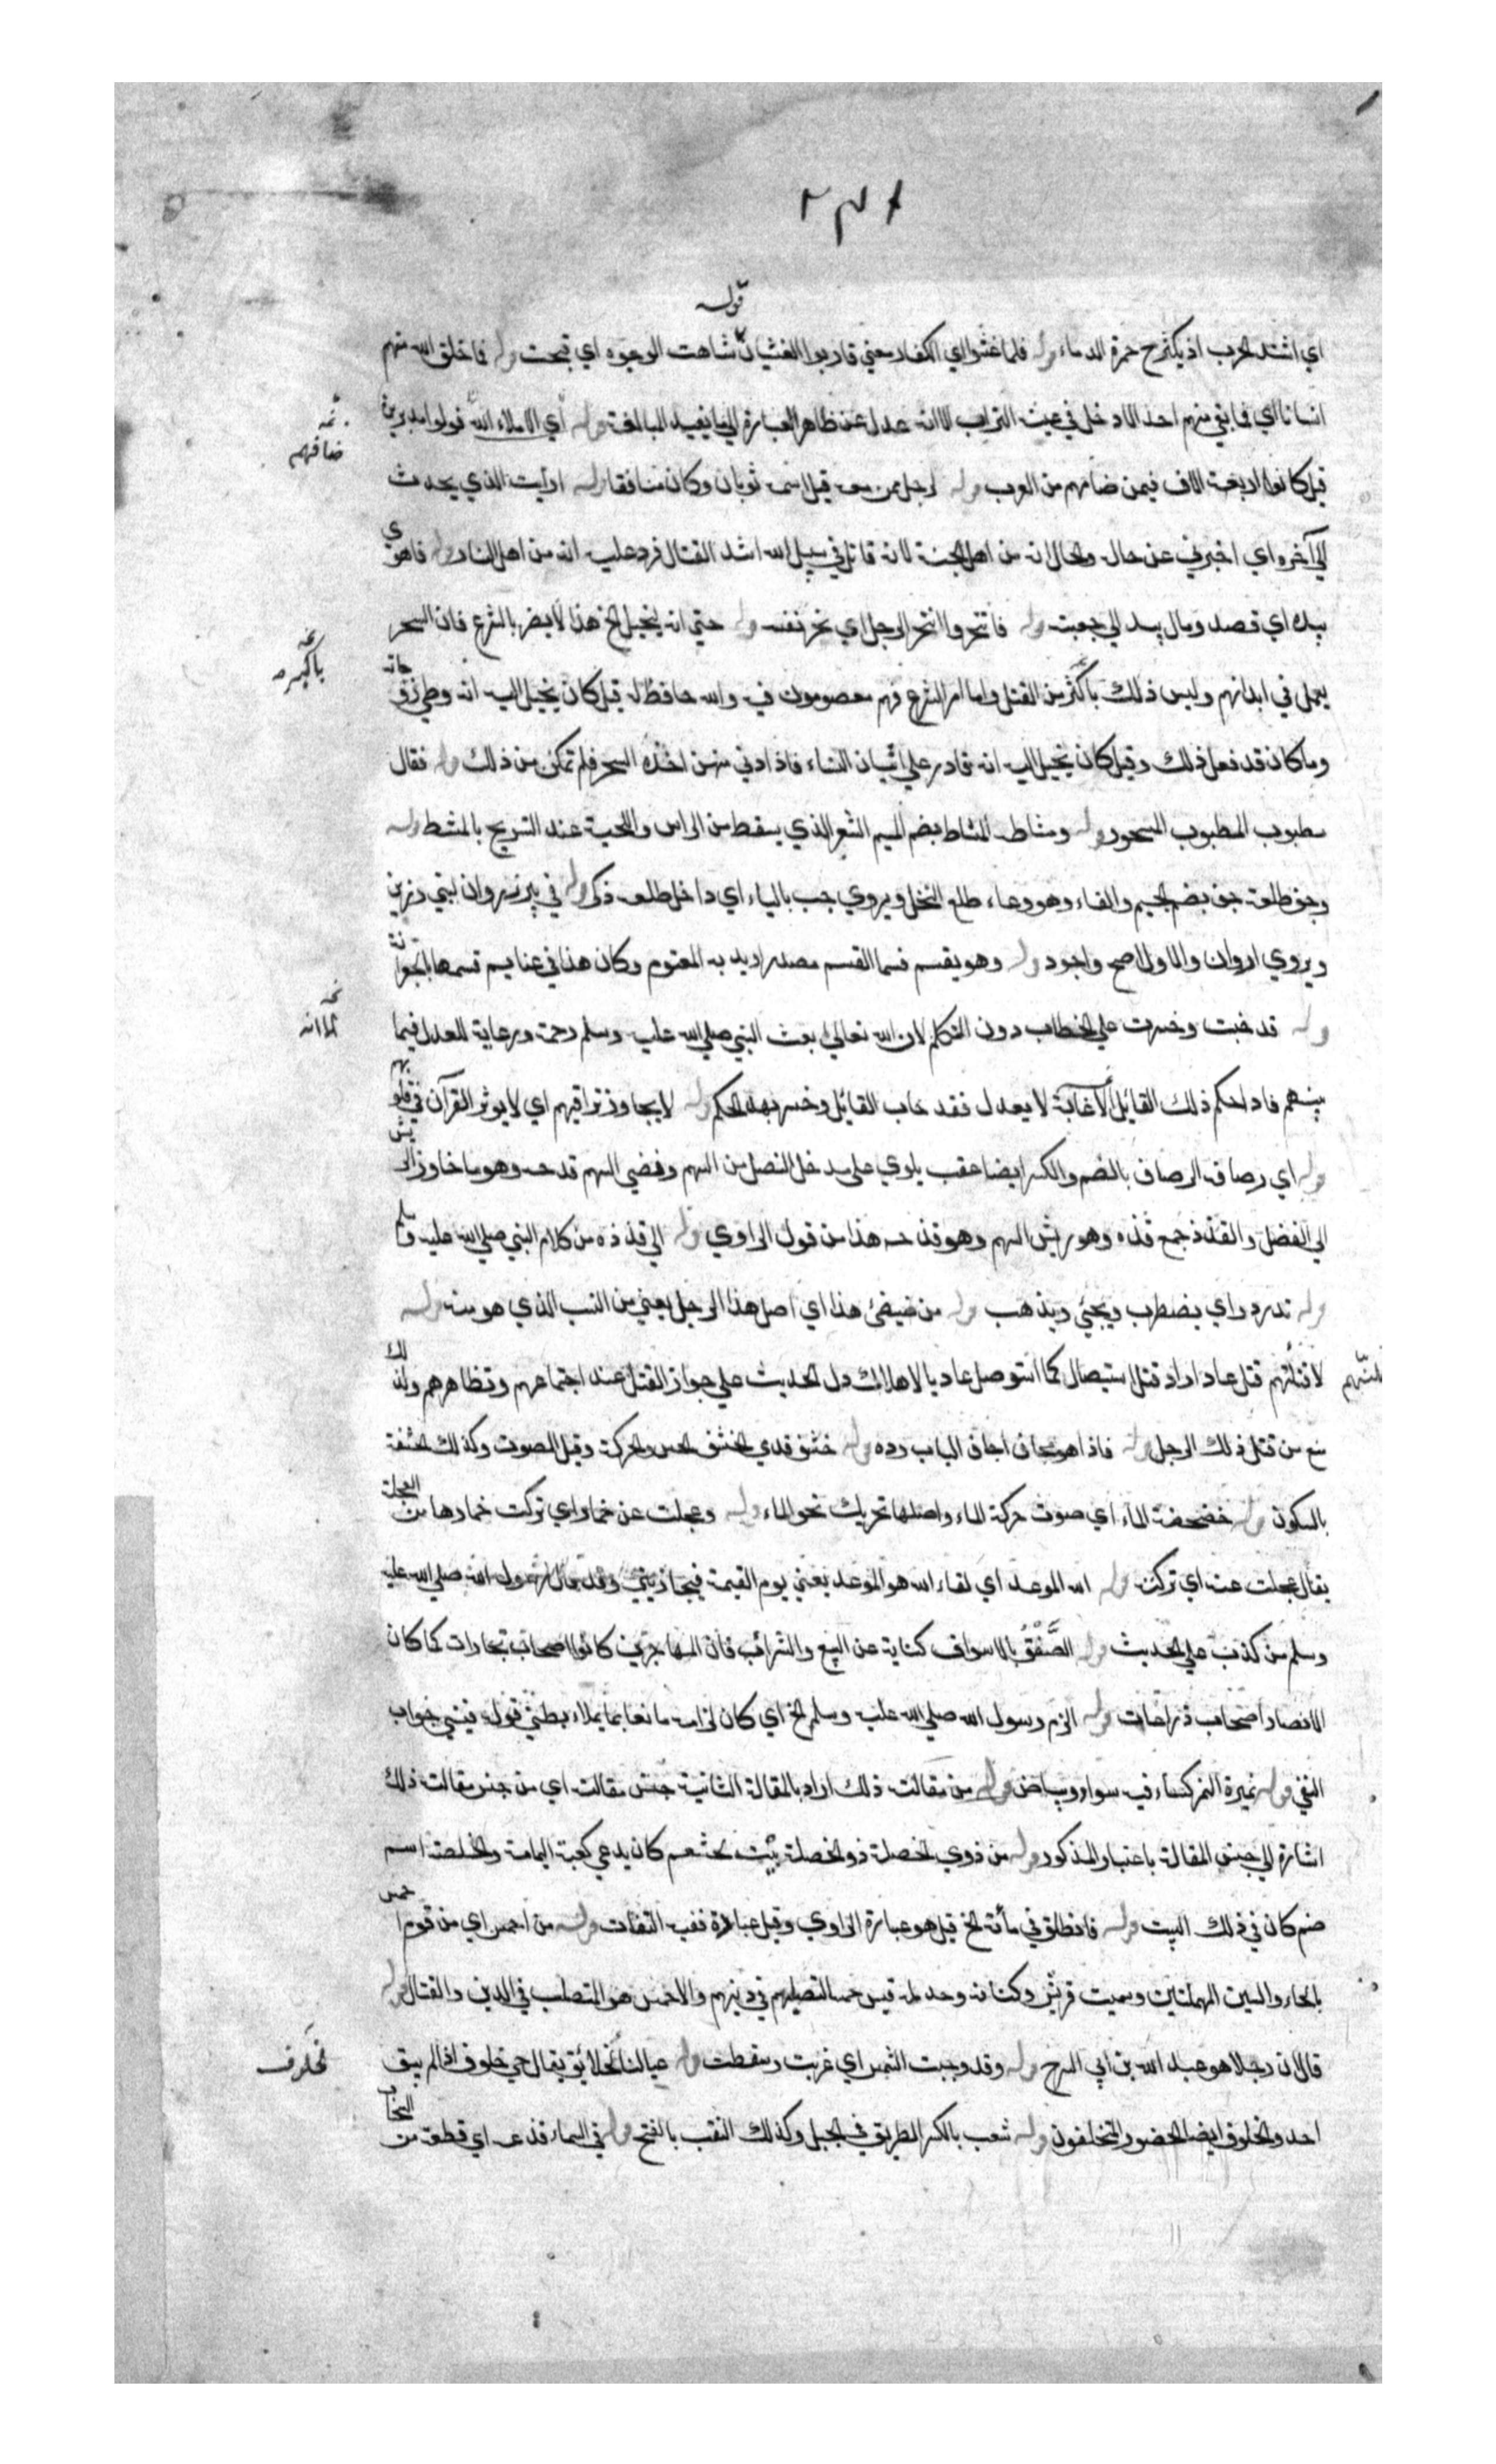 ٢٣٨
قوله
اي اشتد الحرب اذ يكثر ح حمرة الدماء وله فلما غشوا اي الكفار معني قاربوا الغشيان شاهت الوجوه اي قبحت وله فما خلق الله منهم
انسانا اي فما بقي منهم احد الا دخل في عينه التراب الا انه عدل عن ظاهر العبارة الي ما يفيد المبالغة وله اي الاملاء الله فولوا مدبرين
ثمه ضافهم
قيل كانوا اربعة الاف فيمن ضامهم من العرب وله لرجل ممن معه قيل اسمه ثوبان وكان منافقا وله ارايت الذي يحدث
الي آخره اي اخبرني عن حاله والحال انه من اهل الجنة لانه قاتل في سبيل الله اشد القتال فرد عليه انه من اهل النار وله فاهوي
بيده اي قصد ومال بيده الي جعبته وله فانتحر وانتحر الرجل اي نحر نفسه وله حتي انه ليخيل الخ هذا لا يضر بالشرع فان السحر
باكبر
يعمل في ابدانهم وليس ذلك باكثر من القتل واما امر الشرع فهم معصومون فيه والله حافظ له قيل كان يخيل اليه انه وطي زوجاته
وما كان قد فعل ذلك وقيل كان يخيل اليه انه قادر علي اتيان النساء فاذا دني منهن اخذه السحر فلم تمكن من ذلك وله فقال
مطبوب المطبوب المسحور وله ومشاطه المشاط بضم الميم الشعر الذي يسقط من الراس واللحية عند التسريح بالمشط وله
وجف طلعة جف بضم الجيم والفاء وهو وعاء طلع النخل ويروي جب بالباء اي داخل طلعه ذكر وله في بير ذروان لبني زريق
ويروي اروان والاول اصح واجود وله وهو يقسم قسما القسم مصدر اريد به المقسوم وكان هذا في غنايم قسمها بالجعرانة
نخه الا انه
وله قد خبت وخسرت علي الخطاب دون المتكلم لان الله تعالي بعث النبي صلي الله عليه وسلم رحمة ورعاية للعدل فيما
بينهم فاذا حكم ذلك القائل لا يعدل فقد خاب القائل وخسر بهذا الحكم وله لا يجاوز تراقيهم اي لا يوثر القرآن في قلوبهم
وله اي رصافه الرصاف بالضم والكسر ايضا عقب يلوي علي مدخل النصل من السهم ونضي السهم قدحه وهو ما جاوز الريش
الي الفضل والقذذ جمع قذه وهو ريش السهم وهو قدحه هذا من قول الراوي وله الي قذذه من كلام النبي صلي الله عليه وسلم
وله تدردر اي يضطرب ويجئ ويذهب وله من ضيضئ هذا اي اصل هذا الرجل يعني من النسب الذي هو منه وله
لاقتلنهم قتل عاد اراد قتل استيصال كما استوصل عاد بالاهلاك دل الحديث علي جواز القتل عند اجتماعهم وتظاهرهم ولذلك
منع من قتل ذلك الرجل وله فاذا هو مجاف اجاف الباب رده وله خشف قدمي الخشف الحس والحركة وقيل الصوت وكذلك الخشفة
بالسكون وله خضخضة الماء اي صوت حركة الماء واصلها تحريك نحو الماء وله وعجلت عن خمارها اي تركت خمارها من العجلة
يقال عجلت عنه اي تركته وله الله الموعد اي لقاء الله هو الموعد يعني يوم القيمة فيجازيني وقد قال رسول الله صلي الله عليه
وسلم من كذب علي الحديث وله الصَّفْقُ بالاسواق كناية عن البيع والشراء فان المهاجرين كانوا اصحاب تجارات كما كان
الانصار اصحاب زراعات وله الزم رسول الله صلي الله عليه وسلم الخ اي كان لزامه مانعا بما يملاء بطني قوله فينسي جواب
النفي وله نميرة النمر كساء فيه سواد وبياض وله من مقالته ذلك اراد بالمقالة الثانية جنس مقالته اي من جنس مقالته ذلك
اشارة الي جنس المقالة باعتبار المذكور وله من ذوي الخصلة ذو الخصلة بيت لخثعم كان يدعي كعبة اليمامة والخلصة اسم
صنم كان في ذلك البيت وله فانطلق في مأئة الخ قيل هو عبارة الراوي وقيل عبارة ففيه التفات وله من احمس اي من قوم احمس
بالحاء والسين المهملتين وسميت قريش وكنانة وحديله قيس حمسا لتصلبهم في دينهم والاحمس هو المتصلب في الدين والقتال وله
قال ان رجلا هو عبد الله بن ابي السرح وله وقد وجبت الشمس اي غربت وسقطت وله عيالنا لخلائق يقال حي خلوف اذا لم يبق
نخه لخلوف
احد والخلوف ايضا الحضور المتخلفون وله شعب بالكسر الطريق في الجبل وكذلك النقب بالفتح وله في السماء قذعه اي قطعة من السحاب